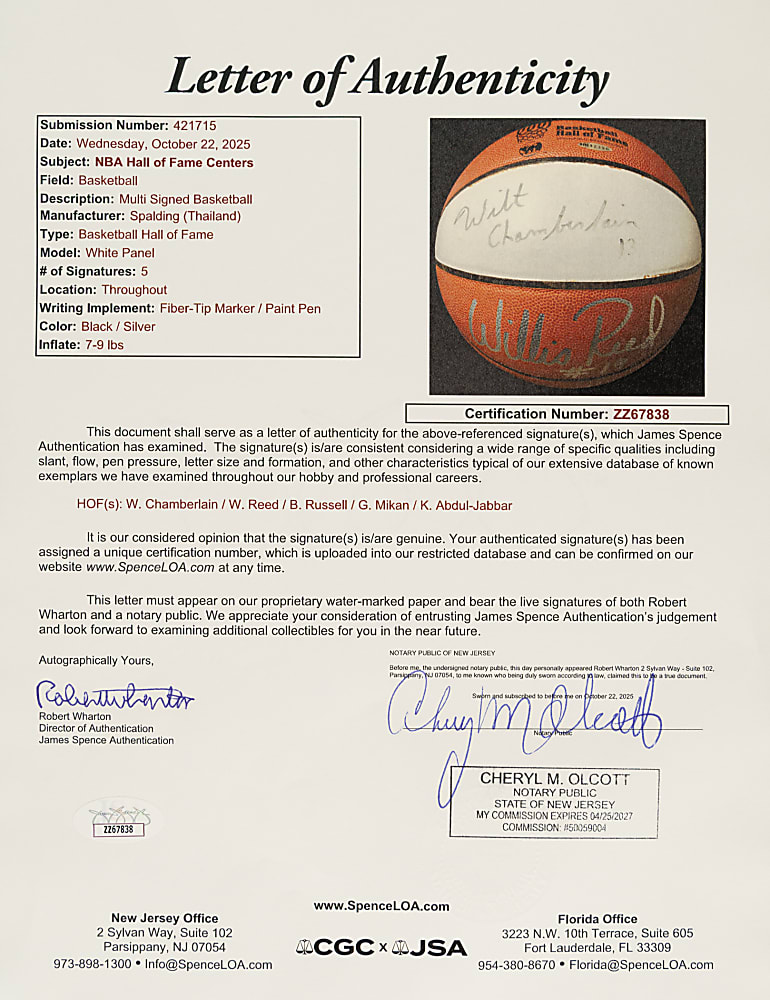 Letter of Authenticity
Submission Number: 421715
Date: Wednesday, October 22, 2025
Subject: NBA Hall of Fame Centers
Field: Basketball
Description: Multi Signed Basketball
Manufacturer: Spalding (Thailand)
Type: Basketball Hall of Fame
Model: White Panel
# of Signatures: 5
Location: Throughout
Writing Implement: Fiber-Tip Marker / Paint Pen
Color: Black / Silver
Inflate: 7-9 lbs
Basketball
Hall of Fame
Wilt
Chamberlain
13
Willis Reed
Certification Number: ZZ67838
This document shall serve as a letter of authenticity for the above-referenced signature(s), which James Spence
Authentication has examined. The signature(s) is/are consistent considering a wide range of specific qualities including
slant, flow, pen pressure, letter size and formation, and other characteristics typical of our extensive database of known
exemplars we have examined throughout our hobby and professional careers.
HOF(s): W. Chamberlain / W. Reed / B. Russell / G. Mikan / K. Abdul-Jabbar
It is our considered opinion that the signature(s) is/are genuine. Your authenticated signature(s) has been
assigned a unique certification number, which is uploaded into our restricted database and can be confirmed on our
website www.SpenceLOA.com at any time.
This letter must appear on our proprietary water-marked paper and bear the live signatures of both Robert
Wharton and a notary public. We appreciate your consideration of entrusting James Spence Authentication's judgement
and look forward to examining additional collectibles for you in the near future.
Autographically Yours,
Robert Wharton
Robert Wharton
Director of Authentication
James Spence Authentication
NOTARY PUBLIC OF NEW JERSEY
Before me, the undersigned notary public, this day personally appeared Robert Wharton 2 Sylvan Way - Suite 102,
Parsippany, NJ 07054, to me known who being duly sworn according to law, claimed this to be a true document.
Sworn and subscribed to before me on October 22, 2025
Cheryl M Olcott
Notary Public
CHERYL M. OLCOTT
NOTARY PUBLIC
STATE OF NEW JERSEY
MY COMMISSION EXPIRES 04/25/2027
COMMISSION: #50059004
ZZ67838
www.SpenceLOA.com
New Jersey Office
2 Sylvan Way, Suite 102
Parsippany, NJ 07054
973-898-1300 • Info@SpenceLOA.com
CGC x JSA
Florida Office
3223 N.W. 10th Terrace, Suite 605
Fort Lauderdale, FL 33309
954-380-8670 • Florida@SpenceLOA.com